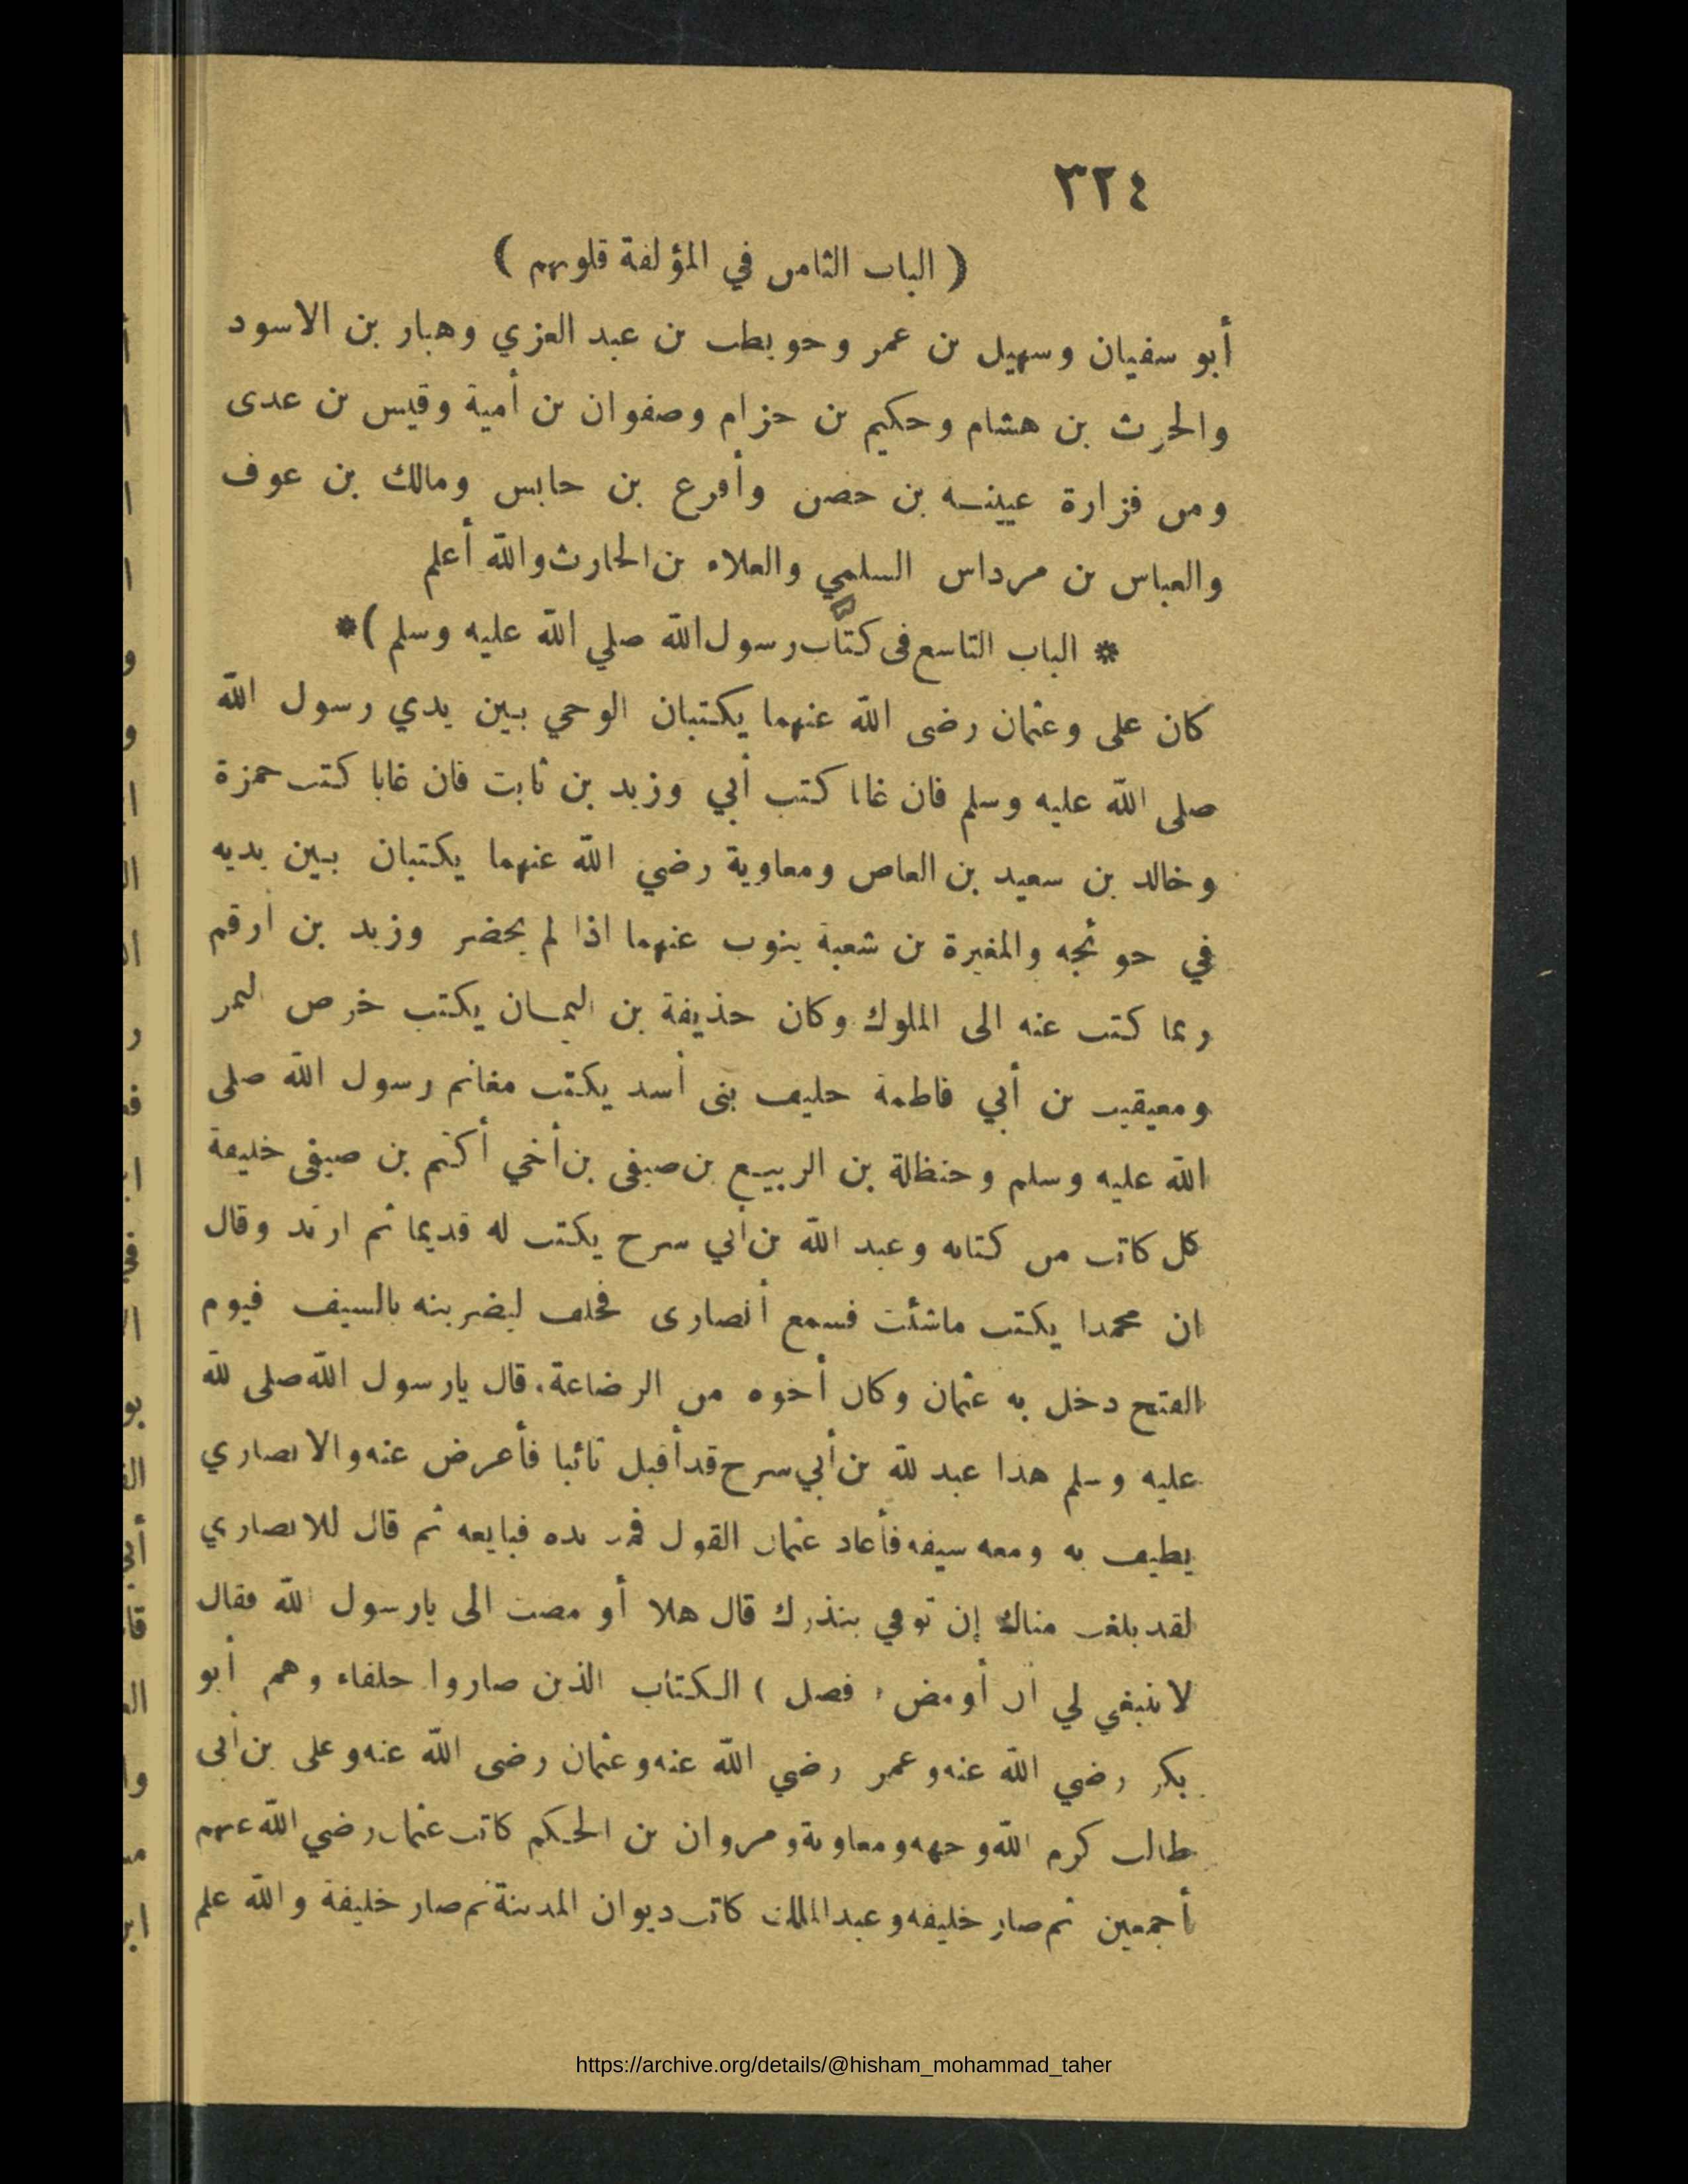 ٣٢٤
( الباب الثامن في المؤلفة قلوبهم )
أبو سفيان وسهيل بن عمر وحويطب بن عبد العزي وهبار بن الاسود
والحرث بن هشام وحكيم بن حزام وصفوان بن أمية وقيس بن عدى
ومن فزارة عيينــة بن حصن وأقرع بن حابس ومالك بن عوف
والعباس بن مرداس السلمي والعلاء بن الحارث والله أعلم
* الباب التاسع فى كتاب رسول الله صلي الله عليه وسلم )*
كان على وعثمان رضى الله عنهما يكتبان الوحي بين يدي رسول الله
صلى الله عليه وسلم فان غابا كتب أبي وزيد بن ثابت فان غابا كتب حمزة
وخالد بن سعيد بن العاص ومعاوية رضي الله عنهما يكتبان بين يديه
في حوئجه والمغيرة بن شعبة ينوب عنهما اذا لم يحضر وزيد بن أرقم
ربما كتب عنه الى الملوك وكان حذيفة بن اليمان يكتب خرص التمر
ومعيقيب بن أبي فاطمة حليف بنى أسد يكتب مغانم رسول الله صلى
الله عليه وسلم وحنظلة بن الربيع بن صيفى بن أخي أكثم بن صيفى خليفة
كل كاتب من كتابه وعبد الله بن أبي سرح يكتب له قديما ثم ارتد وقال
ان محمدا يكتب ماشئت فسمع أنصارى فحلف ليضربنه بالسيف فيوم
الفتح دخل به عثمان وكان أخوه من الرضاعة. قال يارسول الله صلى لله
عليه وسلم هذا عبد لله بن أبي سرح قد أقبل تائبا فأعرض عنه والانصاري
يطيف به ومعه سيفه فأعاد عثمان القول فمد يده فبايعه ثم قال للانصاري
لقد بلغت مناك إن توفي بنذرك قال هلا أو مضت الى يارسول الله فقال
لا ينبغي لي ان أومض ( فصل ) الكتاب الذين صاروا خلفاء وهم أبو
بكر رضي الله عنه وعمر رضي الله عنه وعثمان رضى الله عنه وعلى بن أبى
طالب كرم الله وجهه ومعاوية ومروان بن الحكم كاتب عثمان رضي الله عنهم
أجمعين ثم صار خليفه وعبد الملك كاتب ديوان المدينة ثم صار خليفة والله علم
https://archive.org/details/@hisham_mohammad_taher